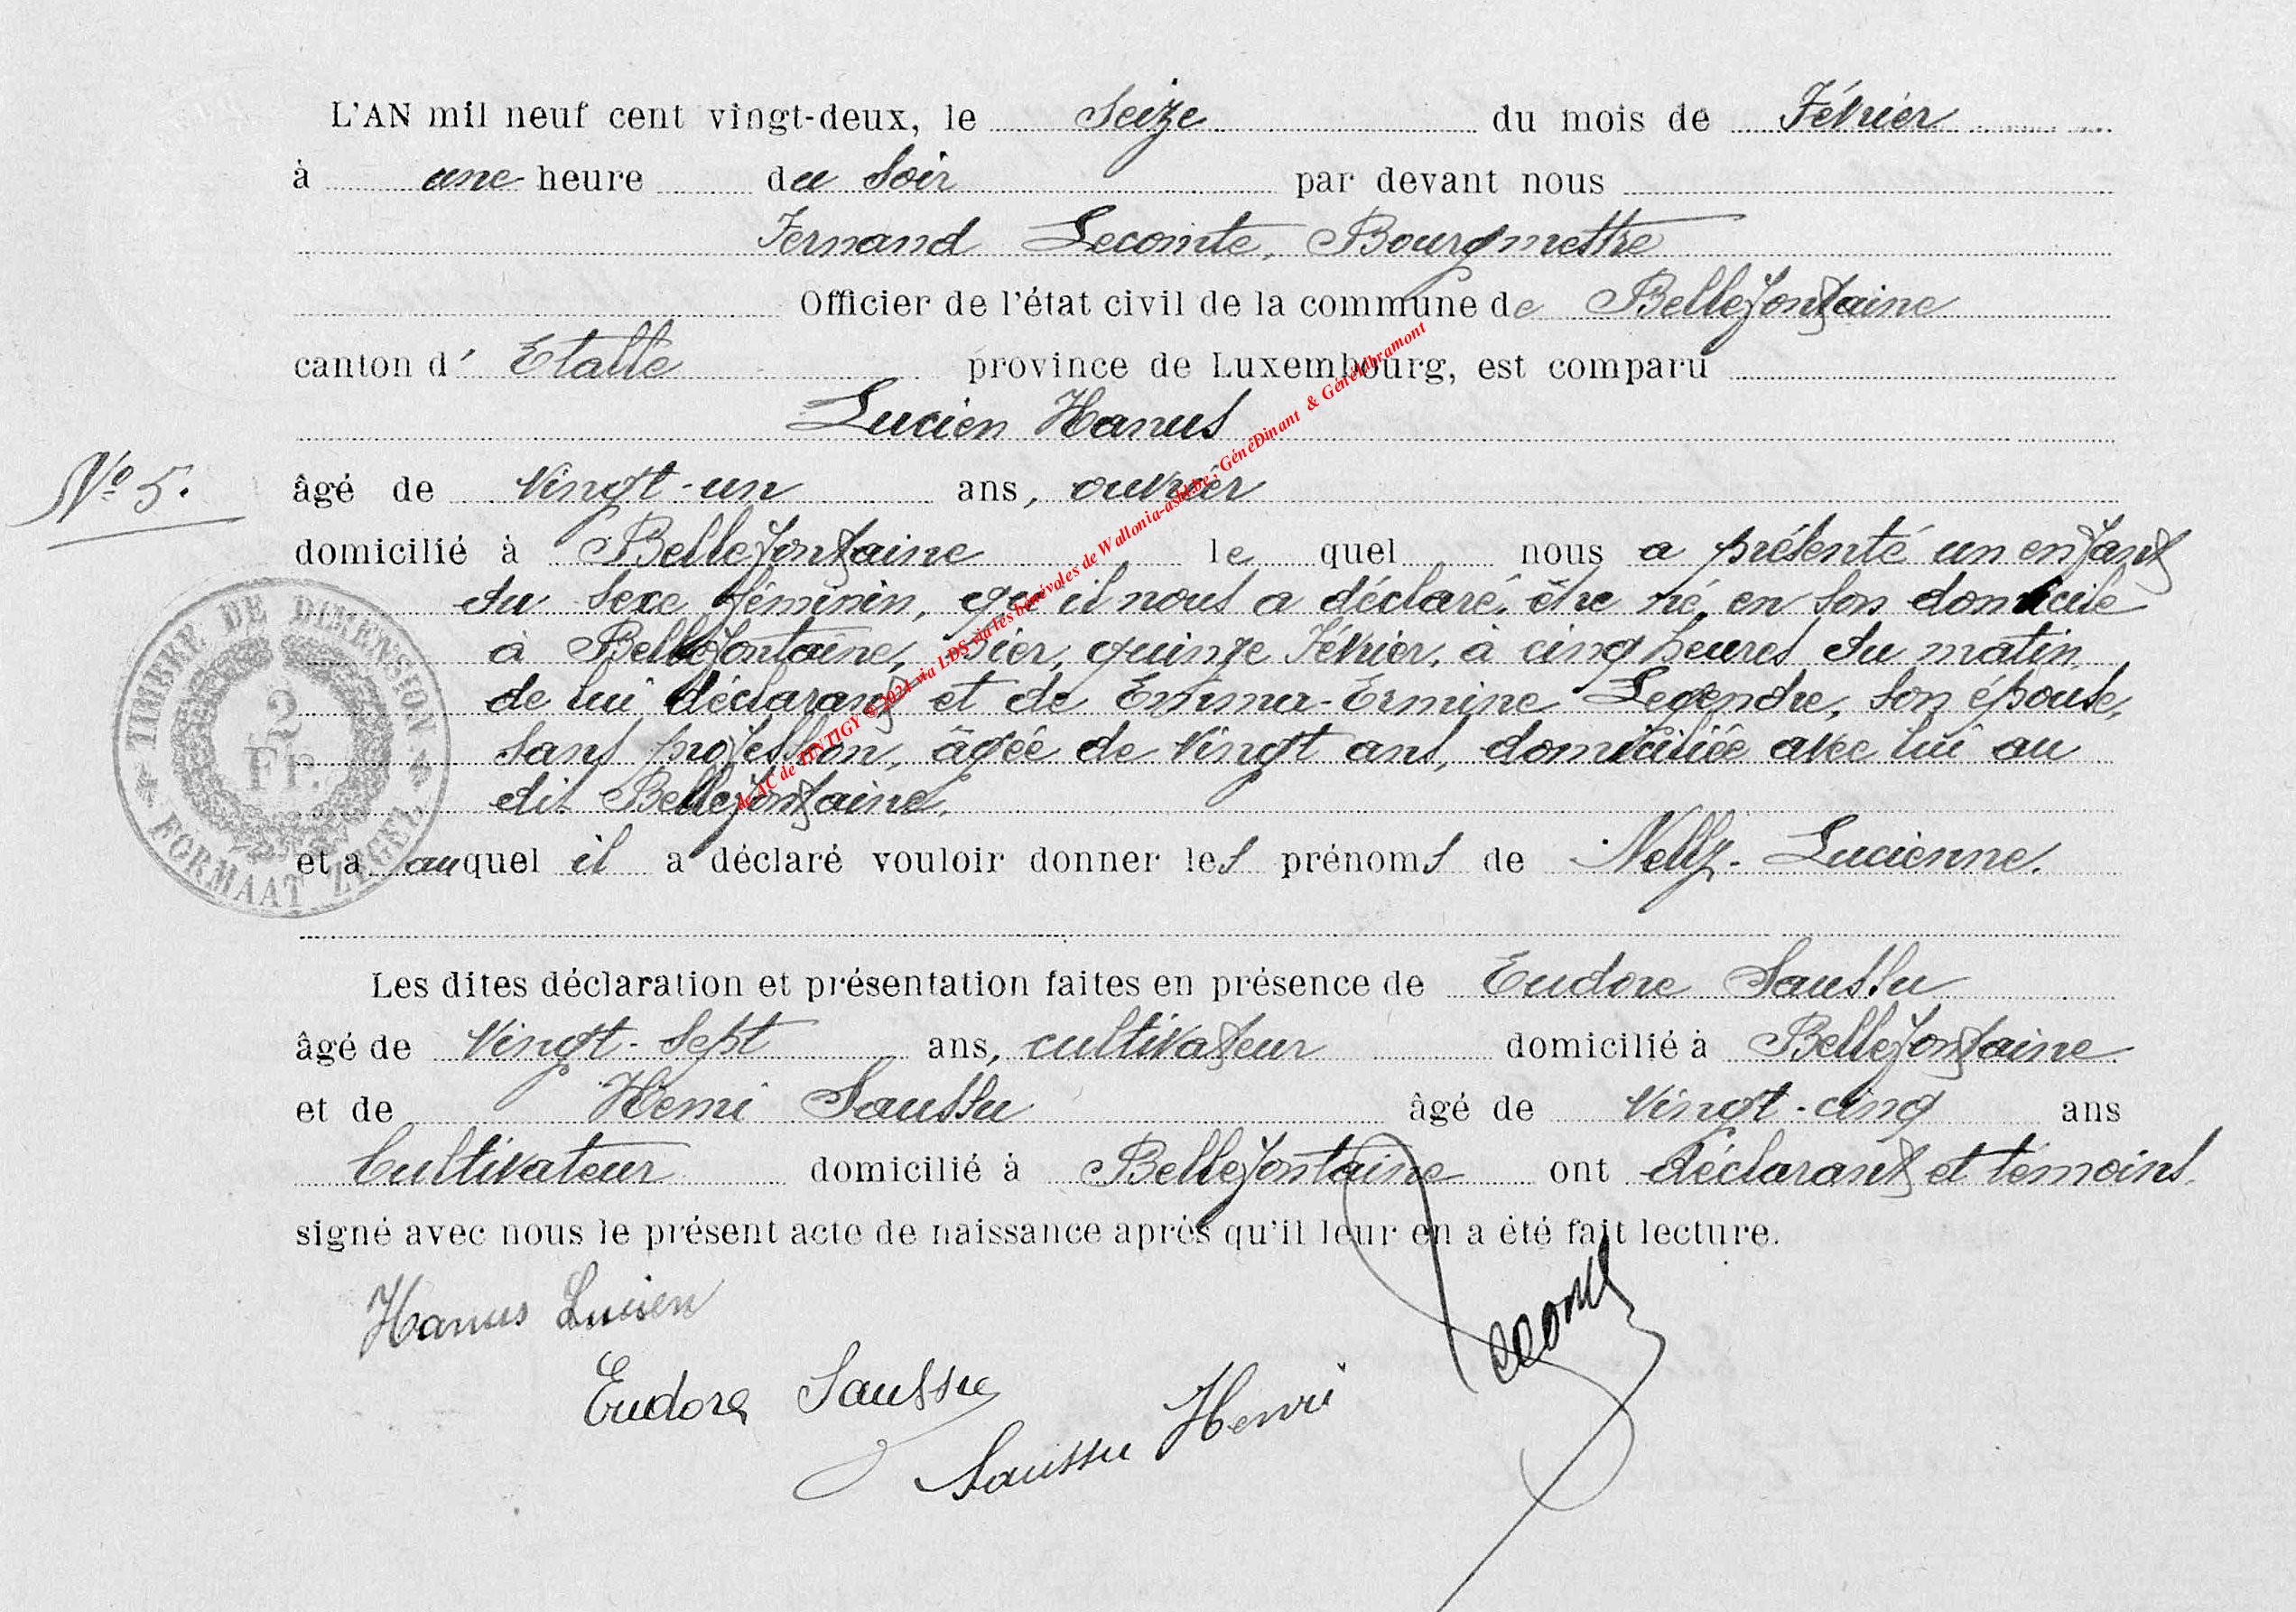 L'AN mil neuf cent vingt-deux, le Seize du mois de Février
à une heure du Soir par devant nous
Fernand Lecomte, Bourgmettre
Officier de l'état civil de la commune de Bellefontaine
canton d' Etalle province de Luxembourg, est comparu
Lucien Hanus
N° 5.
âgé de vingt-un ans, ouvrier
domicilié à Bellefontaine le quel nous a présenté un enfant
du sexe féminin, qu'il nous a déclaré, être né, en son domicile
à Bellefontaine, hier, quinze Février, à cinq heures du matin,
de lui déclarant et de Emma-Ermine Legendre, son épouse,
sans profession, âgée de vingt ans, domiciliée avec lui au
dit Bellefontaine,
et a auquel il a déclaré vouloir donner les prénoms de Nelly-Lucienne.
TIMBRE DE DIMENSION
2
Fr.
FORMAAT ZEGEL
Les dites déclaration et présentation faites en présence de Eudore Saussu
âgé de vingt-sept ans, cultivateur domicilié à Bellefontaine
et de Henri Saussu âgé de vingt-cinq ans
Cultivateur domicilié à Bellefontaine ont déclarant et témoins
signé avec nous le présent acte de naissance après qu'il leur en a été fait lecture.
Hanus Lucien
Lecomte
Eudore Saussu
Saussu Henri
de AC de TINTIGY © 2024 via LDS via les bénévoles de Wallonia-asbl.be : GénéDinant & GénéLibramont